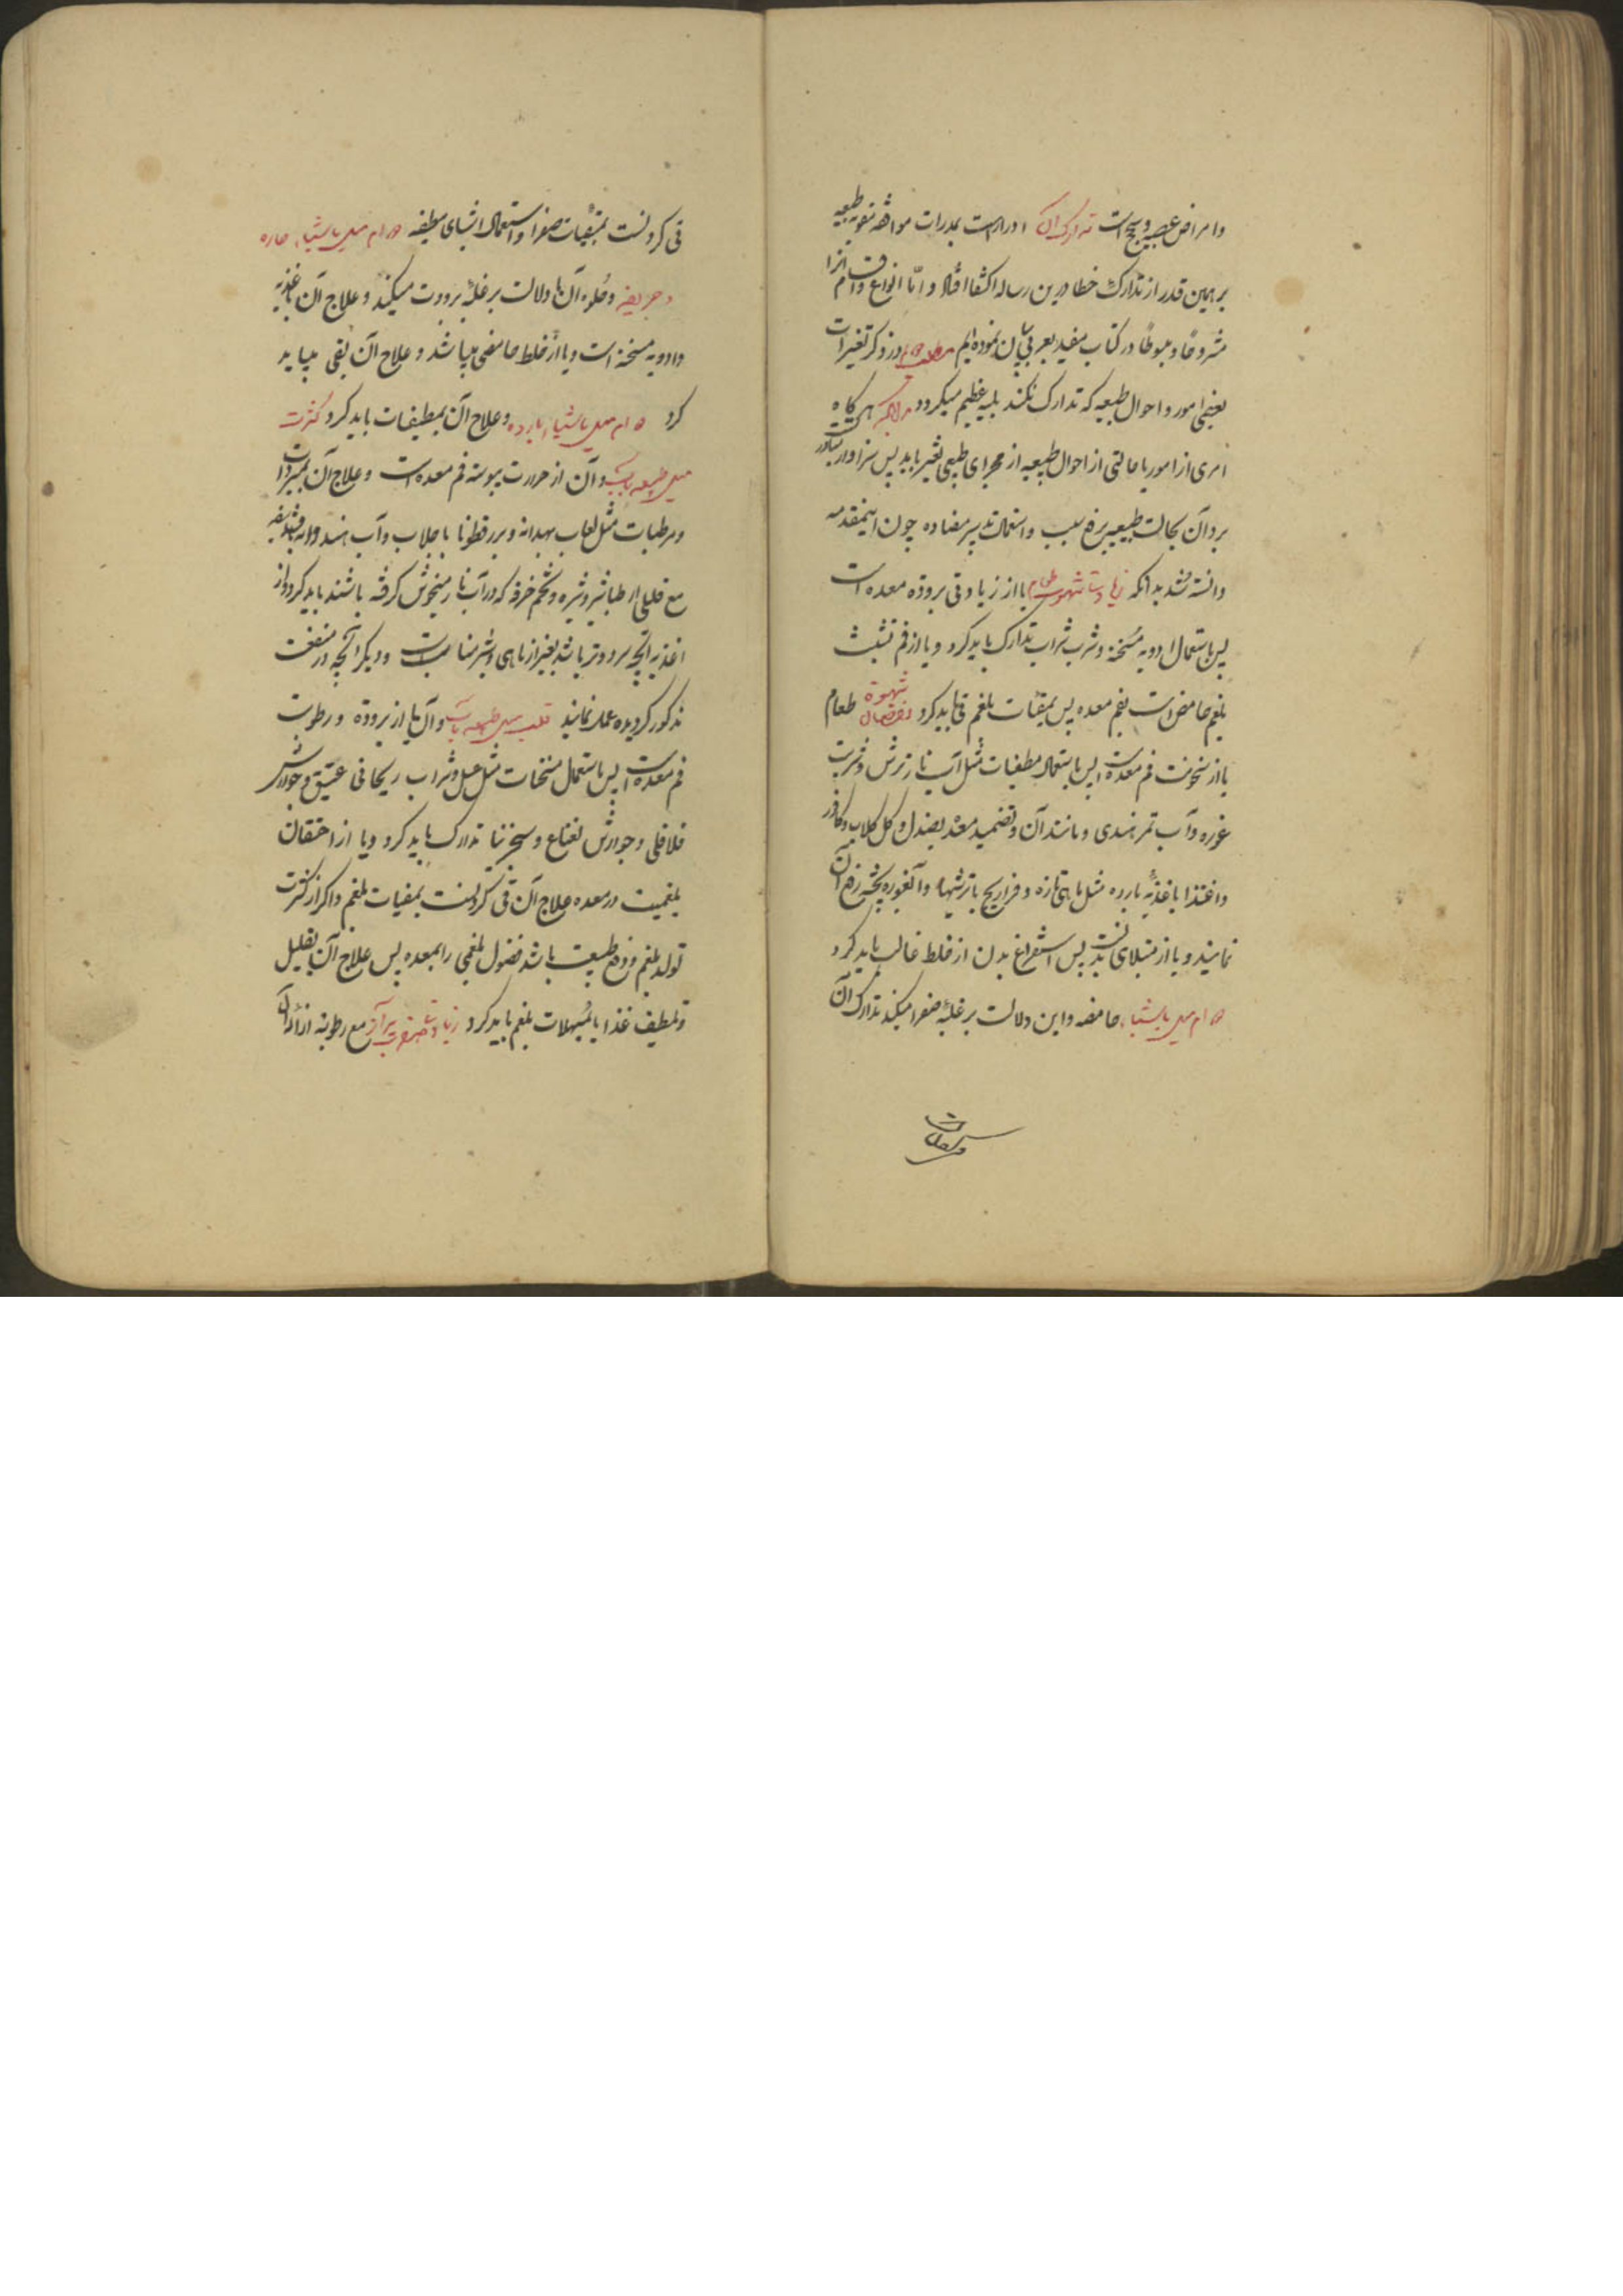 وامراض عصبیه و سحج است تدارک آن ادرار است بمدرات موافقه مقویه طبیعیه
بر همین قدر از تدارک خطا درین رساله اکتفا افتاد و اما انواع و اقسام انرا
مشروحا و مبسوطا در کتاب مفید بعربی بیان نموده ایم در ذکر تغیرات
بعضی امور و احوال طبیعیه که تدارک نکند بلیه عظیم میکردد هرکاه
امری از امور یا حالتی از احوال طبیعیه از مجرای طبیعی تغیر یابد پس سزاوار
برد آن بحالت طبیعیه برفع سبب و استعمال تدبیر مضاده چون اینمقدمه
دانسته شد بدانکه زیادت شهوت طعام یا از زیادتی بروده معده است
پس باستعمال ادویه مسخنه و شرب شراب تدارک باید کرد و یا از فم تشبث
بلغم حامض است بفم معده پس بمقیئات بلغم قی باید کرد نقصان شهوة طعام
یا از سخونت فم معده است پس باستعمال مطفیات مثل آب نار ترش و شربت
غوره و آب تمر هندی و مانند آن و تضمید معده بصندل و کل کلاب و کافور
و اغتذا باغذیه بارده مثل ماهی تازه و فراریج با ترشیها و آبغوره پخته
نمایند و یا از امتلای بدنست پس استفراغ بدن از خلط غالب باید کرد
دوام میل باشیاء حامضه و این دلالت بر غلبه صفرا میکند تدارک آن
قی کردنست بمقیئات صفرا و استعمال اشیای مطفیه دوام میل باشیاء حاره
و حریفه و حلوه آن یا دلالت بر غلبه برودت میکند و علاج آن باغذیه
و ادویه مسخنه است و یا از خلط حامضی میباشد و علاج آن بقی میباید
کرد دوام میل باشیاء بارده و علاج آن بمطفیات باید کرد کثرت
میل طبیعه بآب و آن از حرارت یبوسته فم معده است و علاج آن بمبردات
و مرطبات مثل لعاب بهدانه و بزرقطونا با جلاب و آب هندوانه
مع قلیلی از طباشیر و شیره و تخم خرفه که در آب نار میخوش کرفته باشند باید کرد و از
اغذیه آنچه سرد و تر باشد بغیر از ماهی و شیر مناسب است و دیکر آنچه در منفعت
مذکور کردیده عمل نمایند قلت میل طبیعه بآب و آن یا از بروده و رطوبت
فم معده است پس باستعمال مسخنات مثل عسل و شراب ریحانی عتیق و جوارش
فلافلی و جوارش نعناع و سجزنیا تدارک باید کرد و یا از احتقان
بلغمیت در معده علاج آن قی کردنست بمقیات بلغم و اکر از کثرت
تولد بلغم و دفع طبیعت باشد فضول بلغمی را بمعده پس علاج آن بتقلیل
و تلطیف غذا یا بمسهلات بلغم باید کرد زیادت صفرت براز مع رطوبته ازاله آن